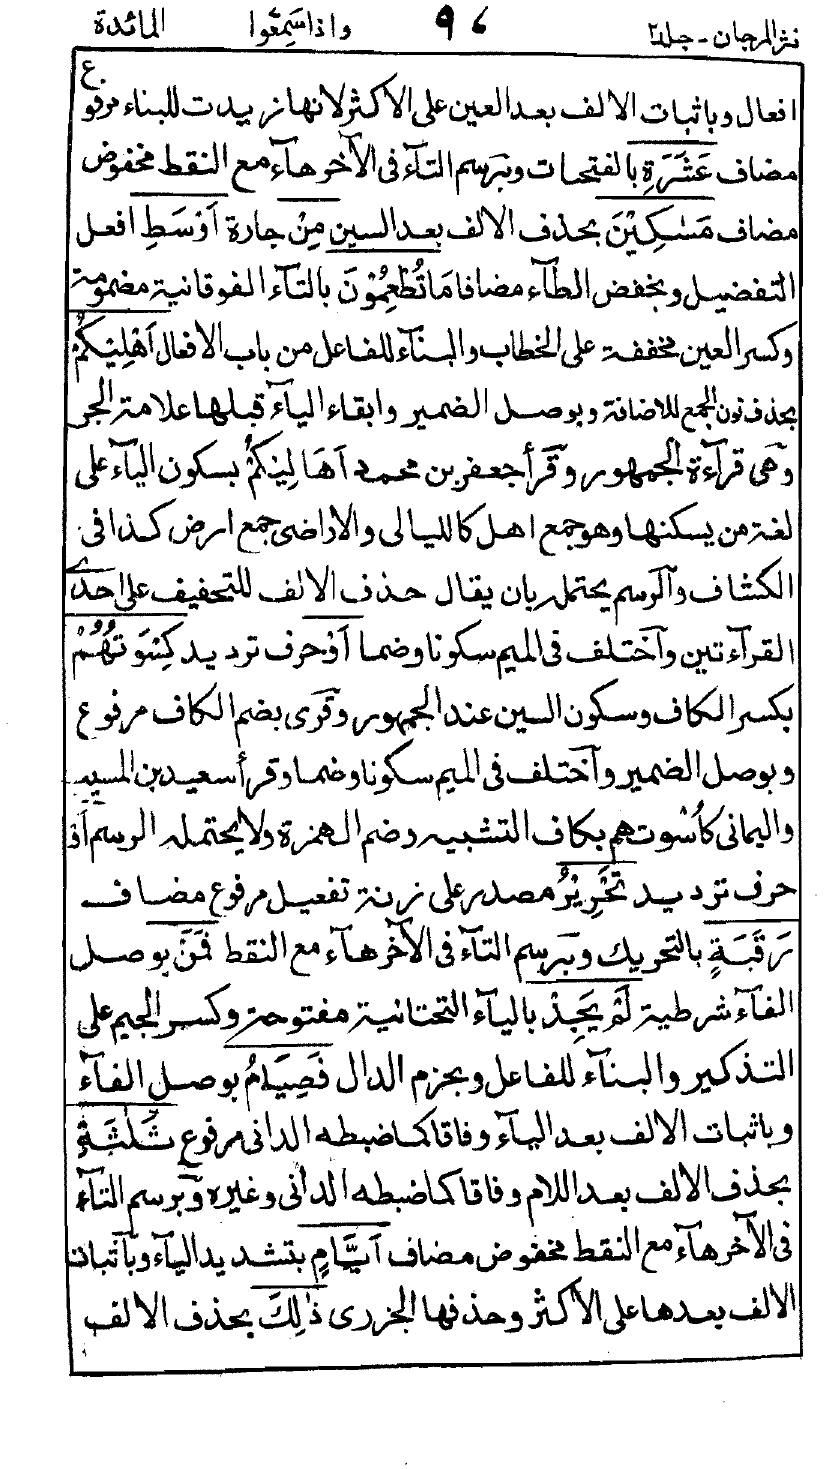 نثر المرجان - جلد ٢ ٩٧ واذا سَمِعُوا المائدة
ع
افعال وباثبات الالف بعد العين على الاكثر لانها زيدت للبناء مرفوع
مضاف عَشَرَةِ بالفتحات وبرسم التآء فى الآخر هآء مع النقط مخفوض
مضاف مَسٰكِيْنَ بحذف الالف بعد السين مِنْ جارة اَوْسَطِ افعل
التفضيل وبخفض الطآء مضافا مَا تُطْعِمُوْنَ بالتآء الفوقانية مضمومة
وكسر العين مخففة على الخطاب والبنآء للفاعل من باب الافعال اَهْلِيْكُمْ
بحذف نون الجمع للاضافة وبوصل الضمير وابقاء اليآء قبلها علامة الجر
وهى قرآءة الجمهور وقرأ جعفر بن محمد اَهَالِيْكُمْ بسكون اليآء على
لغة من يسكنها وهو جمع اهل كالليالى والاراضى جمع ارض كذا فى
الكشاف وآلرسم يحتمله بان يقال حذف الالف للتخفيف على احدى
القرآءتين وآختلف فى الميم سكونا وضما اَوْ حرف ترديد كِسْوَتُهُمْ
بكسر الكاف وسكون السين عند الجمهور وقرى بضم الكاف مرفوع
وبوصل الضمير وآختلف فى الميم سكونا وضما وقرأ سعيد بن المسيب
واليمانى كَاُسْوَتِهم بكاف التشبيه وضم الهمزة ولا يحتمله الرسم اَوْ
حرف ترديد تَحْرِيْرُ مصدر على زنة تفعيل مرفوع مضاف
رَقَبَةٍ بالتحريك وبرسم التآء فى الآخر هآء مع النقط فَمَنْ بوصل
الفآء شرطية لَمْ يَجِدْ باليآء التحتانية مفتوحة وكسر الجيم على
التذكير والبنآء للفاعل وبجزم الدال فَصِيَامُ بوصل الفآء
وباثبات الالف بعد اليآء وفاقا كما ضبطه الدانى مرفوع ثَلٰثَةِ
بحذف الالف بعد اللام وفاقا كما ضبطه الدانى وغيره وبرسم التآء
فى الآخر هآء مع النقط مخفوض مضاف اَيَّامٍ بتشديد اليآء وباثبات
الالف بعدها على الاكثر وحذفها الجزرى ذٰلِكَ بحذف الالف